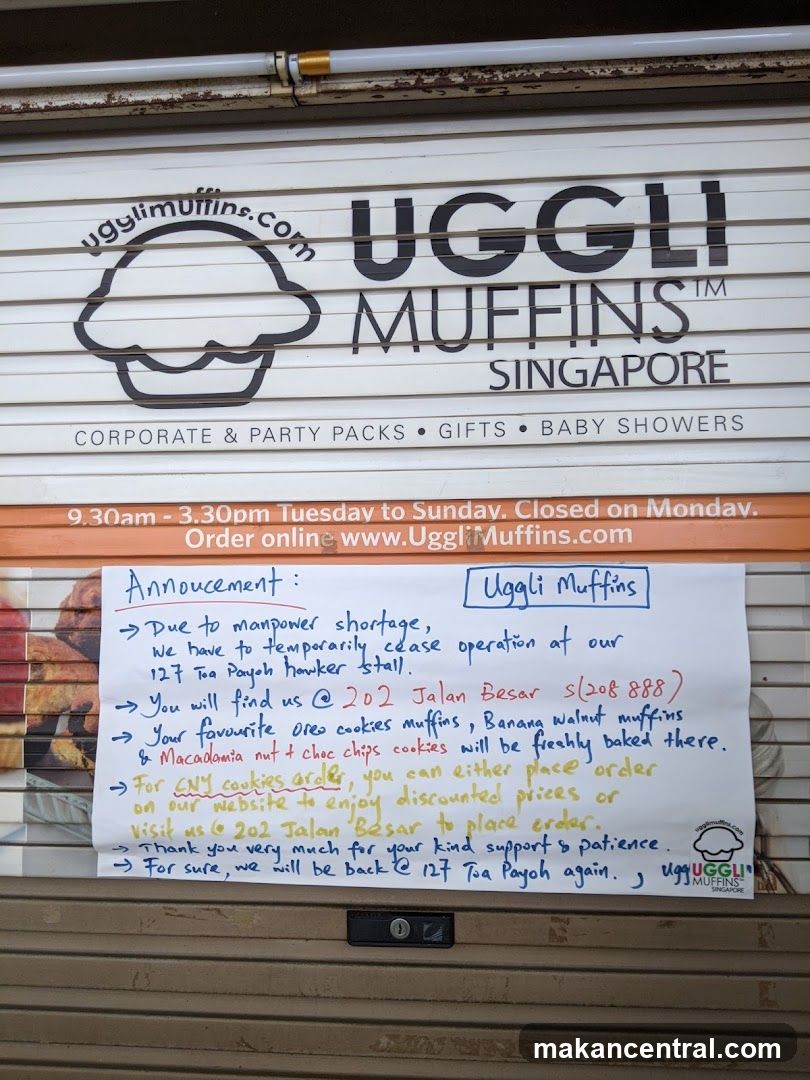 ugglimuffins.com
UGGLI
MUFFINS™
SINGAPORE
CORPORATE & PARTY PACKS • GIFTS • BABY SHOWERS
9.30am - 3.30pm Tuesday to Sunday. Closed on Monday.
Order online www.UggliMuffins.com
Annoucement :
Uggli Muffins
→ Due to manpower shortage,
we have to temporarily cease operation at our
127 Toa Payoh hawker stall.
→ You will find us @ 202 Jalan Besar S(208 888)
→ Your favourite Oreo cookies muffins, Banana walnut muffins
& Macadamia nut + choc chips cookies will be freshly baked there.
→ For CNY cookies order, you can either place order
on our website to enjoy discounted prices or
visit us @ 202 Jalan Besar to place order.
→ Thank you very much for your kind support & patience.
→ For sure, we will be back @ 127 Toa Payoh again.
ugglimuffins.com
UGGLI
MUFFINS™
SINGAPORE
makancentral.com